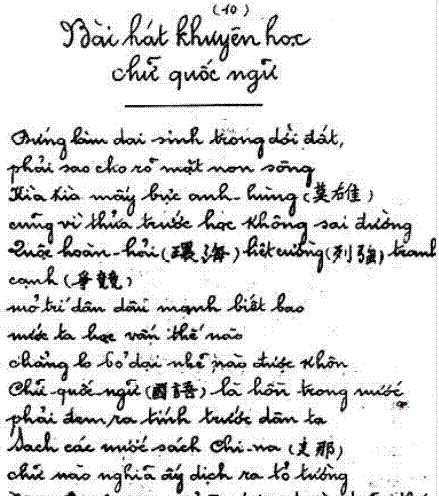 (10)
Bài hát khuyên học
chữ quốc ngữ
Đứng làm dai sinh trong dời đất,
phải sao cho rõ mặt non sông
Kìa kìa mấy bực anh-hùng (英雄)
cũng vì thửa trước học không sai đường
Cuộc hoàn-hải (環海) liệt cường (列強) tranh
cạnh (爭競)
mở trí dân dân mạnh biết bao
nước ta học vấn thế nào
chẳng lo bỏ dại nhẽ nào được khôn
Chữ quốc ngữ (國語) là hồn trong nước
phải đem ra tính trước dân ta
Sách các nước sách Chi-na (支那)
chữ nào nghĩa ấy dịch ra tỏ tường